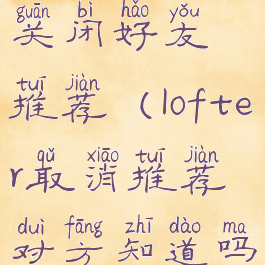 guān bì hǎo yǒu
关闭好友
tuī jiàn
推荐（lofte
qǔ xiāo tuī jiàn
r取消推荐
duì fāng zhī dào ma
对方知道吗